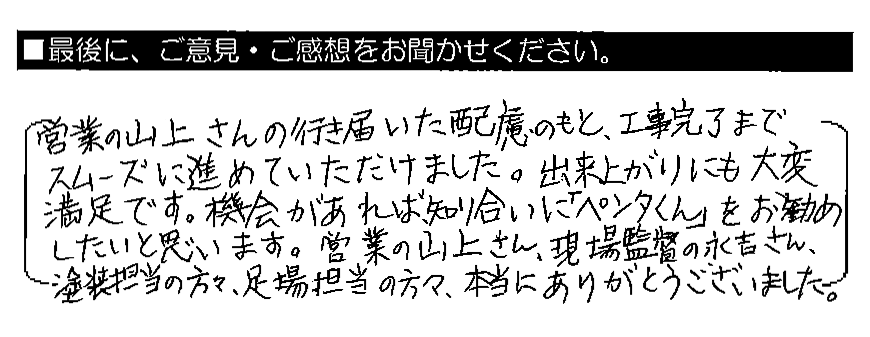 ■最後に、ご意見・ご感想をお聞かせください。
営業の山上さんの行き届いた配慮のもと、工事完了まで
スムーズに進めていただけました。出来上がりにも大変
満足です。機会があれば知り合いに「ペンタくん」をお勧め
したいと思います。営業の山上さん、現場監督の永吉さん、
塗装担当の方々、足場担当の方々、本当にありがとうございました。